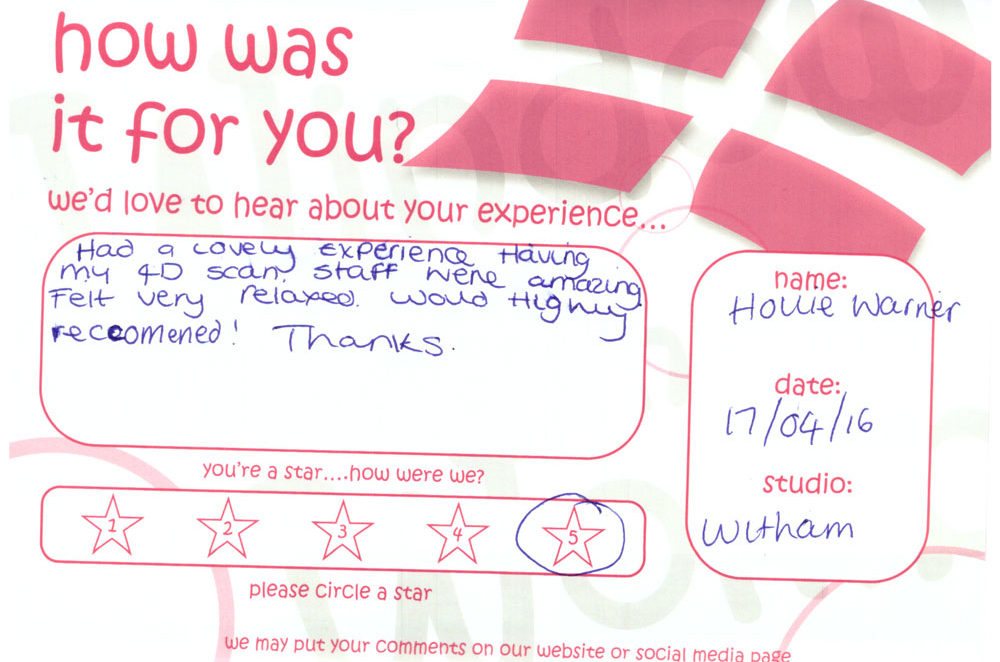 how was
it for you?
we'd love to hear about your experience...
Had a lovely experience Having
my 4D scan, staff were amazing
Felt very relaxed. would Highly
reccomened! Thanks.
name:
Hollie Warner
date:
17/04/16
studio:
Witham
you're a star....how were we?
1 2 3 4 5
please circle a star
we may put your comments on our website or social media page